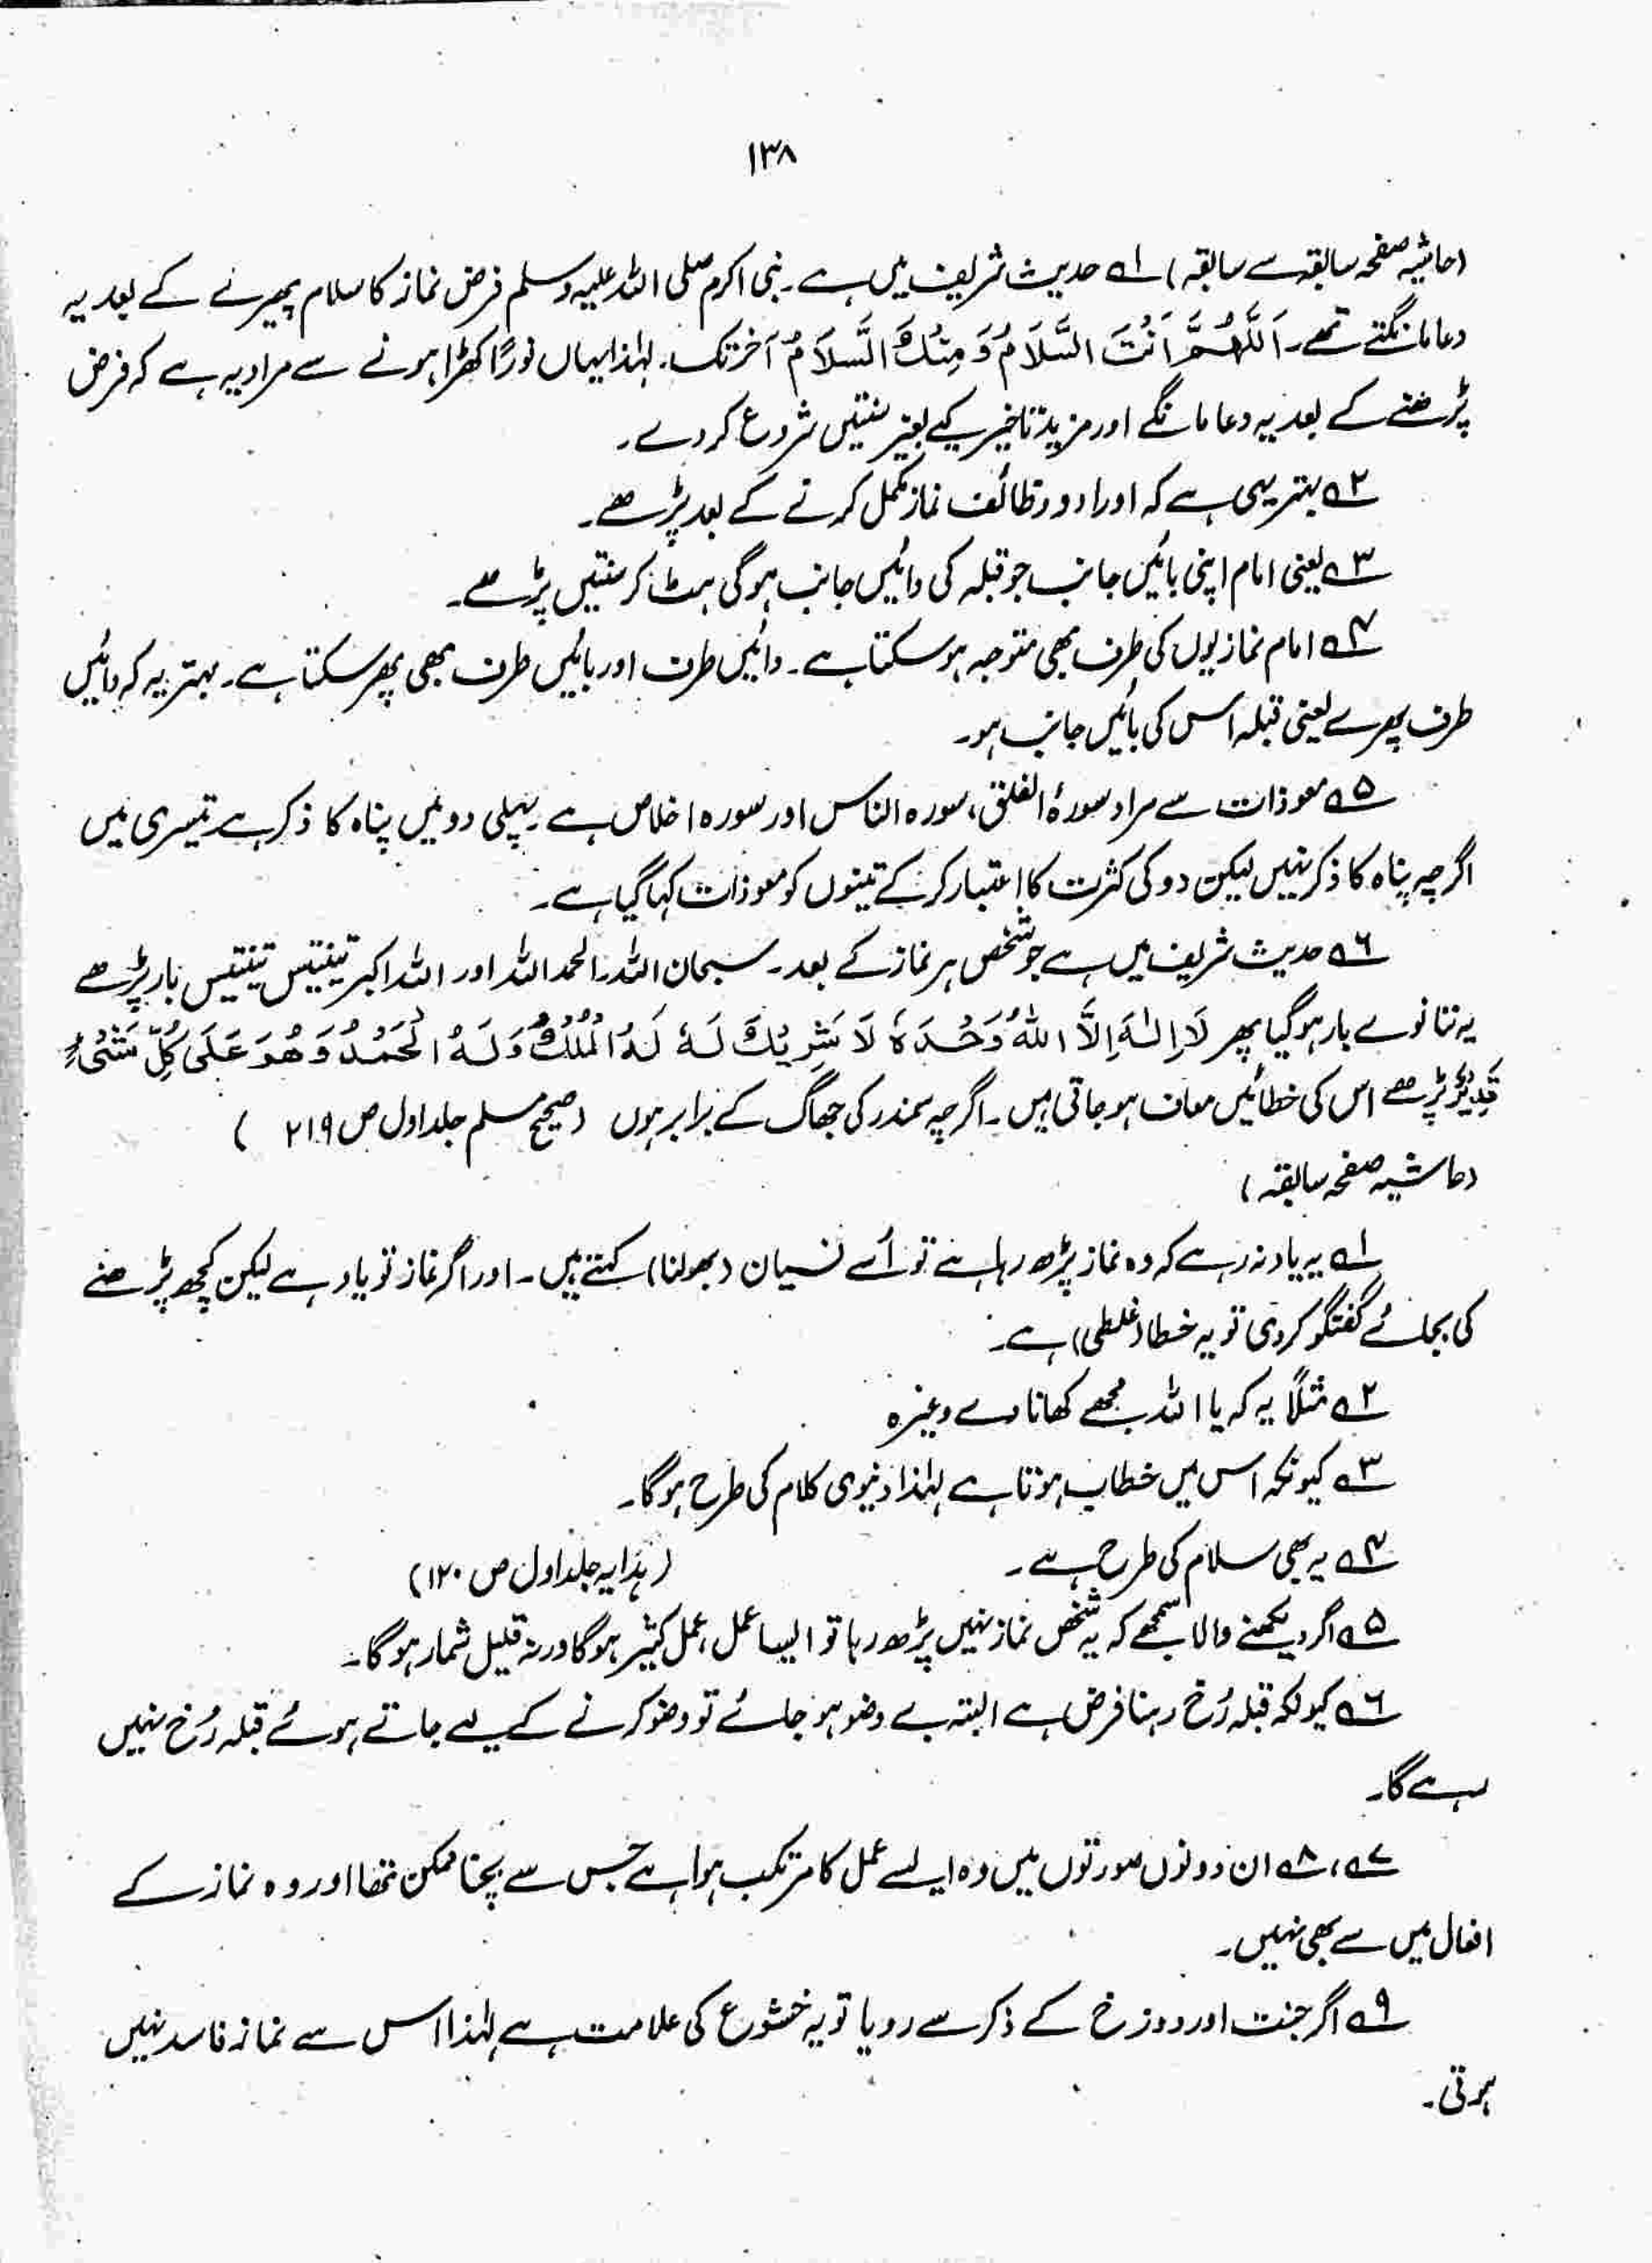 ۱۳۸
(حاشیہ صفحہ سابقہ سے سابقہ) ۱؎ حدیث شریف میں ہے۔ نبی اکرم صلی اللہ علیہ وسلم فرض نماز کا سلام پھیرنے کے بعد یہ
دعا مانگتے تھے۔ اَللّٰھُمَّ اَنْتَ السَّلَامُ وَ مِنْكَ السَّلَامُ آخر تک۔ لہٰذا یہاں فورًا کھڑا ہونے سے مراد یہ ہے کہ فرض
پڑھنے کے بعد یہ دعا مانگے اور مزید تاخیر کیے بغیر سنتیں شروع کر دے۔
۲؎ بہتر یہی ہے کہ اوراد و وظائف نماز مکمل کرنے کے بعد پڑھے۔
۳؎ یعنی امام اپنی بائیں جانب جو قبلہ کی دائیں جانب ہوگی ہٹ کر سنتیں پڑھے۔
۴؎ امام نمازیوں کی طرف بھی متوجہ ہو سکتا ہے۔ دائیں طرف اور بائیں طرف بھی پھر سکتا ہے۔ بہتر یہ کہ دائیں
طرف پھرے یعنی قبلہ اس کی بائیں جانب ہو۔
۵؎ معوذات سے مراد سورۂ الفلق، سورہ الناس اور سورہ اخلاص ہے۔ پہلی دو میں پناہ کا ذکر ہے تیسری میں
اگرچہ پناہ کا ذکر نہیں لیکن دو کی کثرت کا اعتبار کر کے تینوں کو معوذات کہا گیا ہے۔
۶؎ حدیث شریف میں ہے جو شخص ہر نماز کے بعد۔ سبحان اللہ۔ الحمد اللہ اور اللہ اکبر تینتیس تینتیس بار پڑھے
یہ ننانوے بار ہو گیا پھر لَا اِلٰہَ اِلَّا اللّٰہُ وَحْدَہٗ لَا شَرِیْكَ لَہٗ لَہُ الْمُلْكُ وَلَہُ الْحَمْدُ وَھُوَ عَلَی کُلِّ شَیْءٍ
قَدِیْرٌ پڑھے اس کی خطائیں معاف ہو جاتی ہیں۔ اگرچہ سمندر کی جھاگ کے برابر ہوں (صحیح مسلم جلد اول ص ۲۱۹ )
(حاشیہ صفحہ سابقہ)
۱؎ یہ یاد نہ رہے کہ وہ نماز پڑھ رہا ہے تو اُسے نسیان (بھولنا) کہتے ہیں۔ اور اگر نماز تو یاد ہے لیکن کچھ پڑھنے
کی بجائے گفتگو کر دی تو یہ خطا (غلطی) ہے۔
۲؎ مثلًا یہ کہ یا اللہ مجھے کھانا دے وغیرہ
۳؎ کیونکہ اس میں خطاب ہوتا ہے لہٰذا دنیوی کلام کی طرح ہوگا۔
۴؎ یہ بھی سلام کی طرح ہے۔ (ہدایہ جلد اول ص ۱۲۰)
۵؎ اگر دیکھنے والا سمجھے کہ یہ شخص نماز نہیں پڑھ رہا تو ایسا عمل، عمل کثیر ہوگا ورنہ قلیل شمار ہوگا۔
۶؎ کیونکہ قبلہ رُخ رہنا فرض ہے البتہ بے وضو ہو جائے تو وضو کرنے کے لیے جاتے ہوئے قبلہ رُخ نہیں
رہے گا۔
۷؎، ۸؎ ان دونوں صورتوں میں وہ ایسے عمل کا مرتکب ہوا ہے جس سے بچنا ممکن تھا اور وہ نماز کے
افعال میں سے بھی نہیں۔
۹؎ اگر جنت اور دوزخ کے ذکر سے رویا تو یہ خشوع کی علامت ہے لہٰذا اس سے نماز فاسد نہیں
ہوتی۔